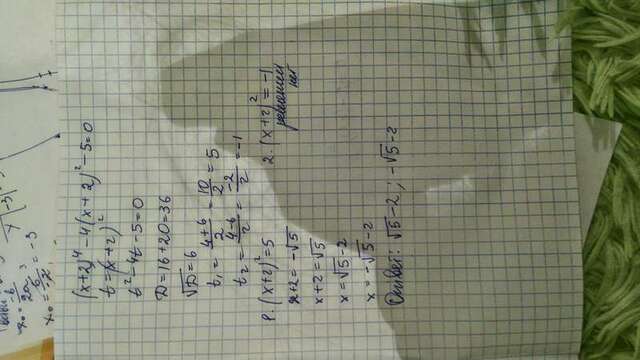 (x+2)⁴-4(x+2)²-5=0
t=(x+2)²
t²-4t-5=0
D=16+20=36
√D=6
t₁=4+6/2=10/2=5
t₂=4-6/2=-2/2=-1
1. (x+2)²=5
x+2=-√5
x+2=√5
x=√5-2
x=-√5-2
2. (x+2)²=-1
решений
нет
Ответ: √5-2; -√5-2